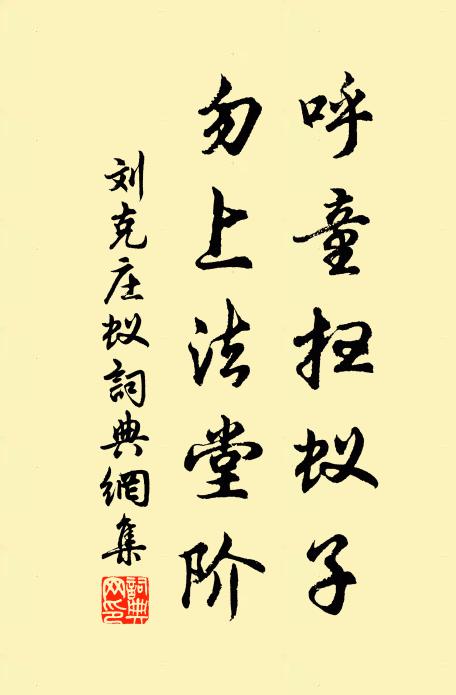 呼童扫蚁子
勿上法堂阶
刘克庄蚁詞典網集
詞典网印